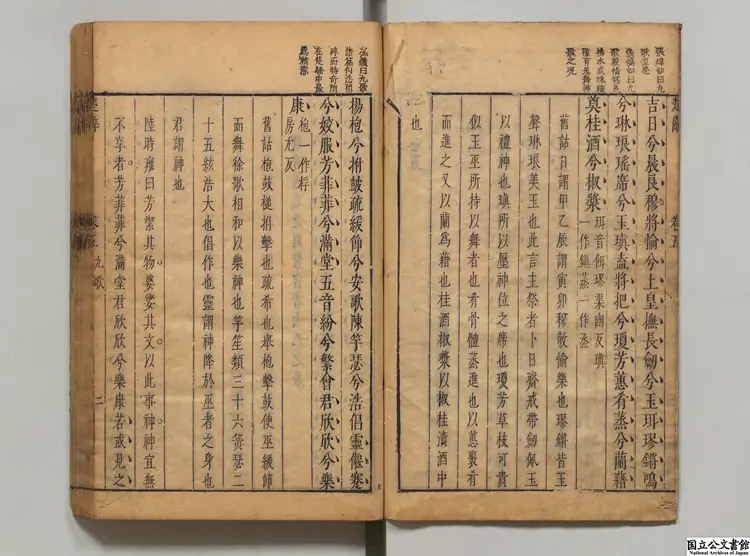 楚辭 卷五
吉日兮辰良穆將愉兮上皇撫長劍兮玉珥璆鏘鳴
兮琳琅瑤席兮玉瑱盍將把兮瓊芳蕙肴蒸兮蘭藉
奠桂酒兮椒漿
珥音餌璆渠幽反瑱
一作鎮蒸一作烝
舊詁日謂甲乙辰謂寅卯穆敬愉樂也璆鏘皆玉
聲琳琅美玉也此言主祭者卜日齋戒帶劒佩玉
以禮神也瑱所以壓神位之席也瓊芳草枝可貴
似玉巫所持以舞者也肴骨體蒸進也以蕙裹肴
而進之又以蘭爲藉也桂酒椒漿以椒桂漬酒中
也
揚枹兮拊鼓疏緩節兮安歌陳竽瑟兮浩倡靈偃蹇
兮姣服芳菲菲兮滿堂五音紛兮繁會君欣欣兮樂
康
枹一作桴
房尤反
舊詁枹鼓槌拊擊也疏希也舉枹擊鼓使巫緩節
而舞徐歌相和以樂神也竽笙類三十六簧瑟二
十五絃浩大也倡作也靈謂神降於巫者之身也
君謂神也
陸時雍曰芳潔其物婆娑其文以此事神神宜無
不享者芳菲菲兮滿堂君欣欣兮樂康若或見之
楚辭 卷五 九歌 二
国立公文書館
National Archives of Japan